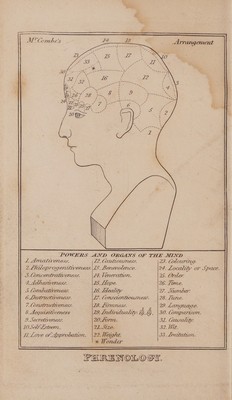 Mr. Combe's
Arrangement
POWERS AND ORGANS OF THE MIND
1. Amativeness.
2. Philoprogenitiveness.
3. Concentrativeness.
4. Adhesiveness.
5. Combativeness.
6. Destructiveness.
7. Constructiveness.
8. Acquisitiveness.
9. Secretiveness.
10. Self Esteem.
11. Love of Approbation.
12. Cautiousness.
13. Benevolence.
14. Veneration.
15. Hope
16. Ideality
17. Conscientiousness.
18. Firmness.
19. Individuality
20. Form.
21. Size.
22. Weight.
* Wonder
23. Colouring.
24. Locality or Space.
25. Order
26. Time.
27. Number
28. Tune.
29. Language.
30. Comparison.
31. Causality.
32. Wit.
33. Imitation.
PHRENOLOGY.